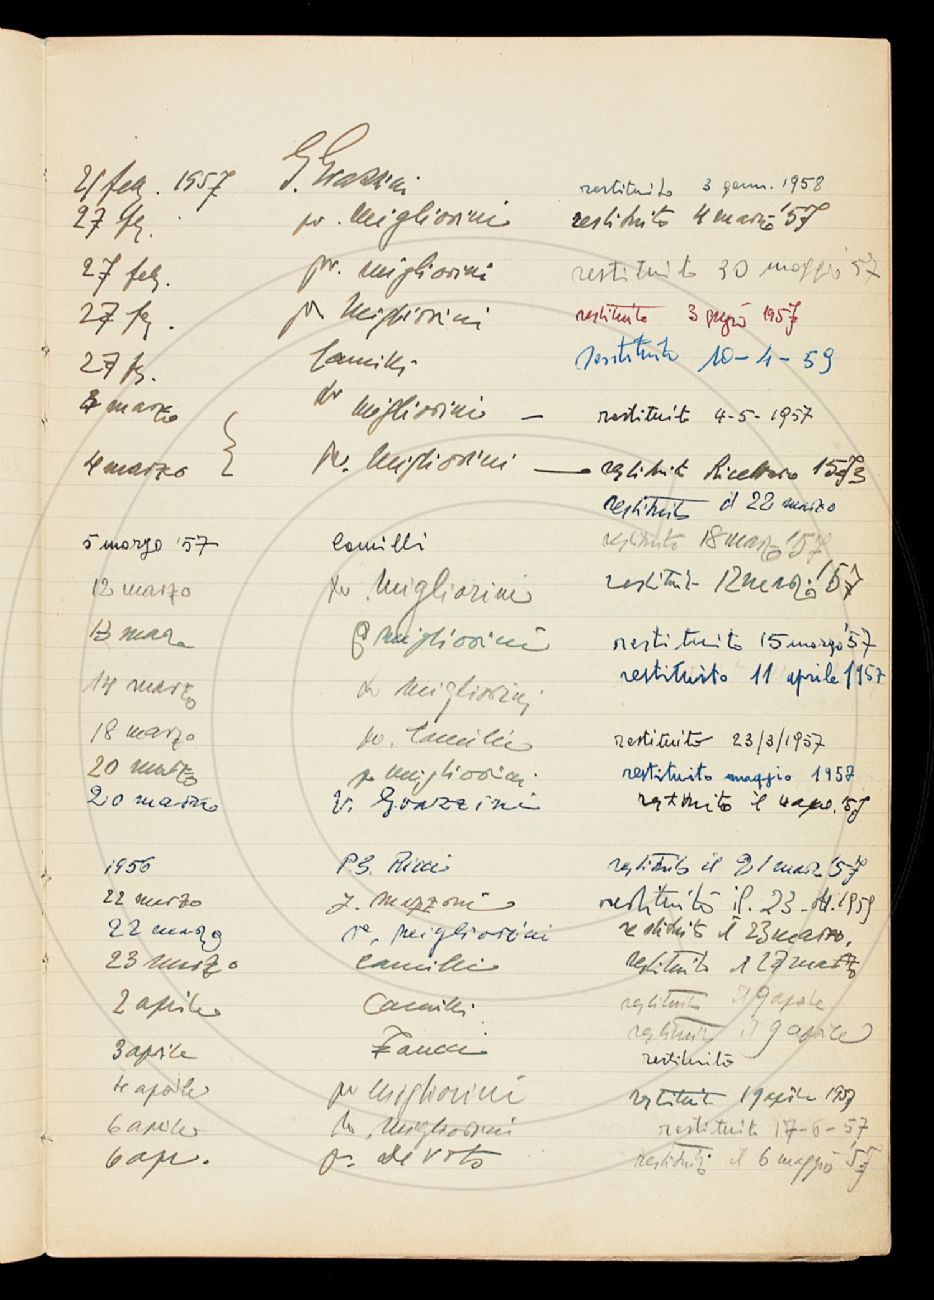 21 feb. 1957 G. Grazzini restituito 3 genn. 1958
27 fe. pr. Migliorini restituito 4 marzo '57
27 feb. pr. Migliorini restituito 30 maggio '57
27 fe. pr Migliorini restituito 3 giugno 1957
27 fe. Camilli restituito 10-4-59
4 marzo dr Migliorini — restituito 4-5-1957
4 marzo pr. Migliorini — restituit Ricettario 1573
restituito il 22 marzo
5 marzo '57 Camilli restituito 18 marzo '57
12 marzo pr. Migliorini restituito 12 marzo '57
13 marzo P Migliorini restituito 15 marzo '57
14 marzo pr Migliorini restituito 11 aprile 1957
18 marzo pr. Camilli restituito 23/3/1957
20 marzo pr Migliorini restituito maggio 1957
20 marzo V. Grazzini restituito il 4 apr. '57
1956 P.G. Ricci restituito il 21 marzo '57
22 marzo G. Mazzoni restituito il. 23. ott. 1959
22 marzo pr, Migliorini restituito il 23 marzo.
23 marzo Camilli restituito il 27 marzo
2 aprile Camilli restituito il 9 aprile
restituito il 9 aprile
3 aprile restituito
4 aprile pr Migliorini restituito 19 aprile 1957
6 aprile pr. Migliorini restituito 17-6-57
6 apr. p. Devoto restituito il 6 maggio '57